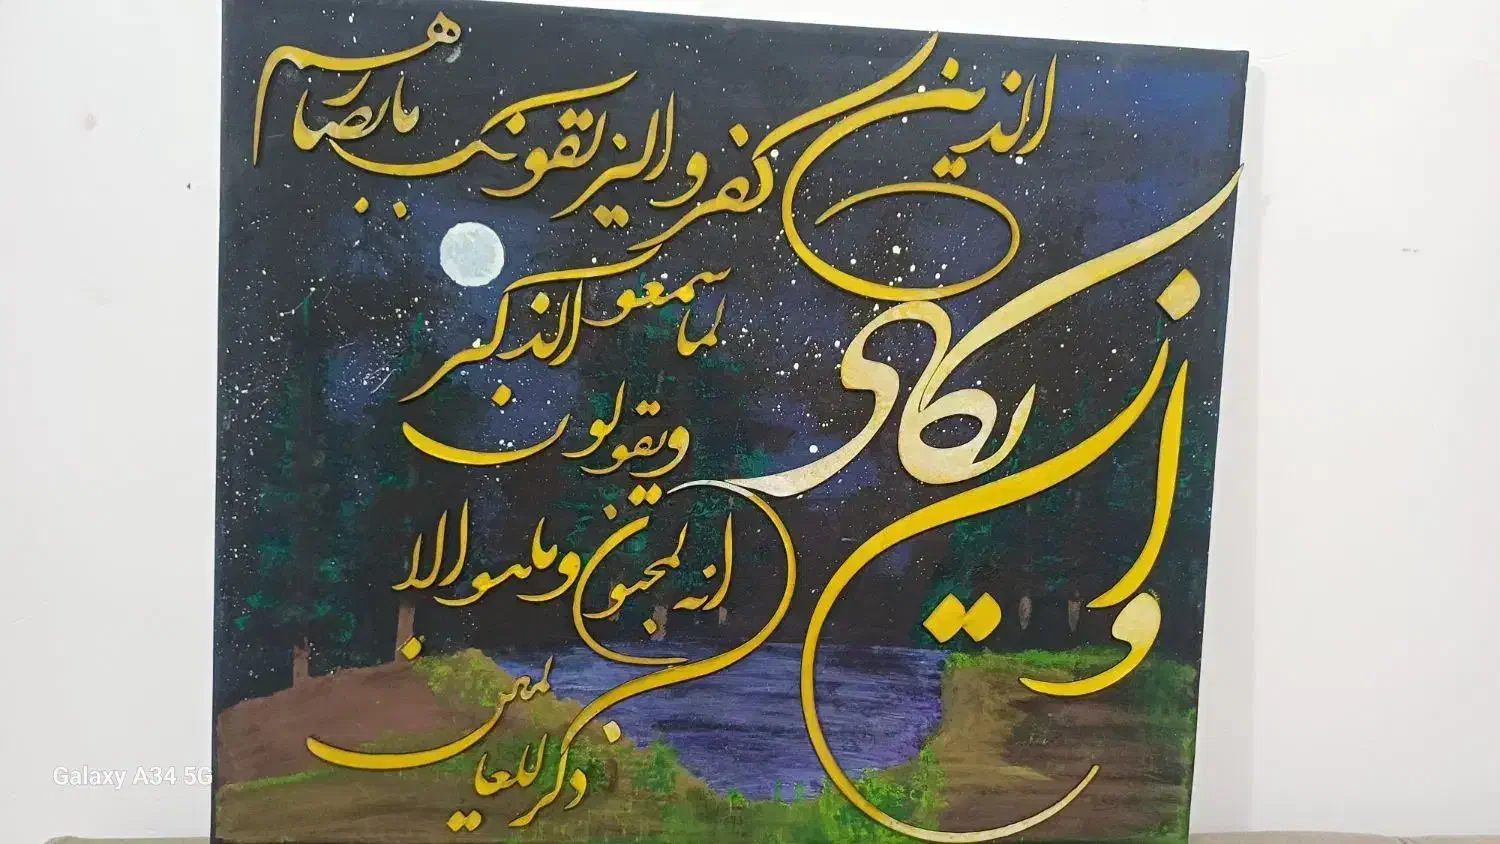 وان یکاد
الذین کفروالیزلقونک بابصارهم
لما سمعو الذکر
ویقولون
انه لمجنون وماهو الا
ذکر للعالمین
Galaxy A34 5G